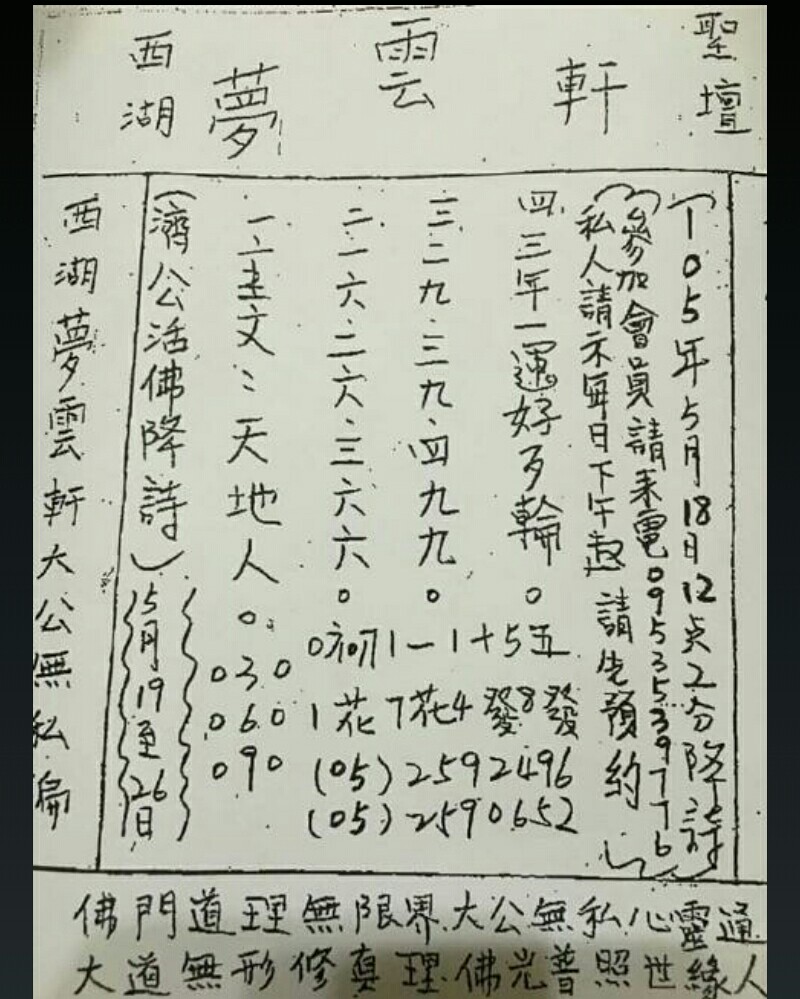 聖壇
軒
雲
夢
西湖
(105年5月18日12点2分降詩)
(參加會員請来電0953539776
私人請示每日下午起請先預約)
四.三年一運好歹輪。
三.二九.三九.四九九。
二.一六.二六.三六六。
一.立主文:天地人。
(濟公活佛降詩)
5月19至26日
0初1一1十5五
1花7花4發8發
(05)2592496
(05)2590652
030
060
090
西湖夢雲軒大公無私偏
佛門道理無限界大公無私心靈通
大道無形修真理佛光普照世緣人